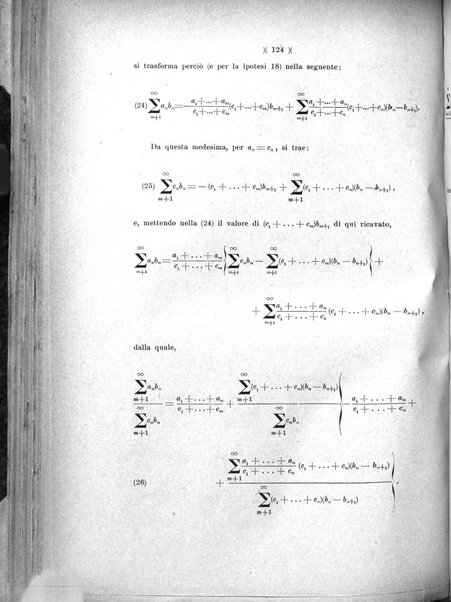 )( 124 )(
si trasforma perciò (e per la ipotesi 18) nella seguente:
(24) \sum_{m+1}^{\infty} a_n b_n = \frac{a_1 + ... + a_m}{c_1 + ... + c_m} (c_1 + ... + c_m) b_{m+1} + \sum_{m+1}^{\infty} \frac{a_1 + ... + a_n}{c_1 + ... + c_n} (c_1 + ... + c_n)(b_n - b_{n+1}).
Da questa medesima, per a_n = c_n, si trae:
(25) \sum_{m+1}^{\infty} c_n b_n = - (c_1 + ... + c_m) b_{m+1} + \sum_{m+1}^{\infty} (c_1 + ... + c_n)(b_n - b_{n+1}),
e, mettendo nella (24) il valore di (c_1 + ... + c_m) b_{m+1} di qui ricavato,
\sum_{m+1}^{\infty} a_n b_n = \frac{a_1 + ... + a_m}{c_1 + ... + c_m} \{ \sum_{m+1}^{\infty} c_n b_n - \sum_{m+1}^{\infty} (c_1 + ... + c_n)(b_n - b_{n+1}) \} +
+ \sum_{m+1}^{\infty} \frac{a_1 + ... + a_n}{c_1 + ... + c_n} (c_1 + ... + c_n)(b_n - b_{n+1}),
dalla quale,
\frac{\sum_{m+1}^{\infty} a_n b_n}{\sum_{m+1}^{\infty} c_n b_n} = \frac{a_1 + ... + a_m}{c_1 + ... + c_m} + \frac{\sum_{m+1}^{\infty} (c_1 + ... + c_n)(b_n - b_{n+1})}{\sum_{m+1}^{\infty} c_n b_n} \{ - \frac{a_1 + ... + a_m}{c_1 + ... + c_m} +
(26) + \frac{\sum_{m+1}^{\infty} \frac{a_1 + ... + a_n}{c_1 + ... + c_n} (c_1 + ... + c_n)(b_n - b_{n+1})}{\sum_{m+1}^{\infty} (c_1 + ... + c_n)(b_n - b_{n+1})} \}.